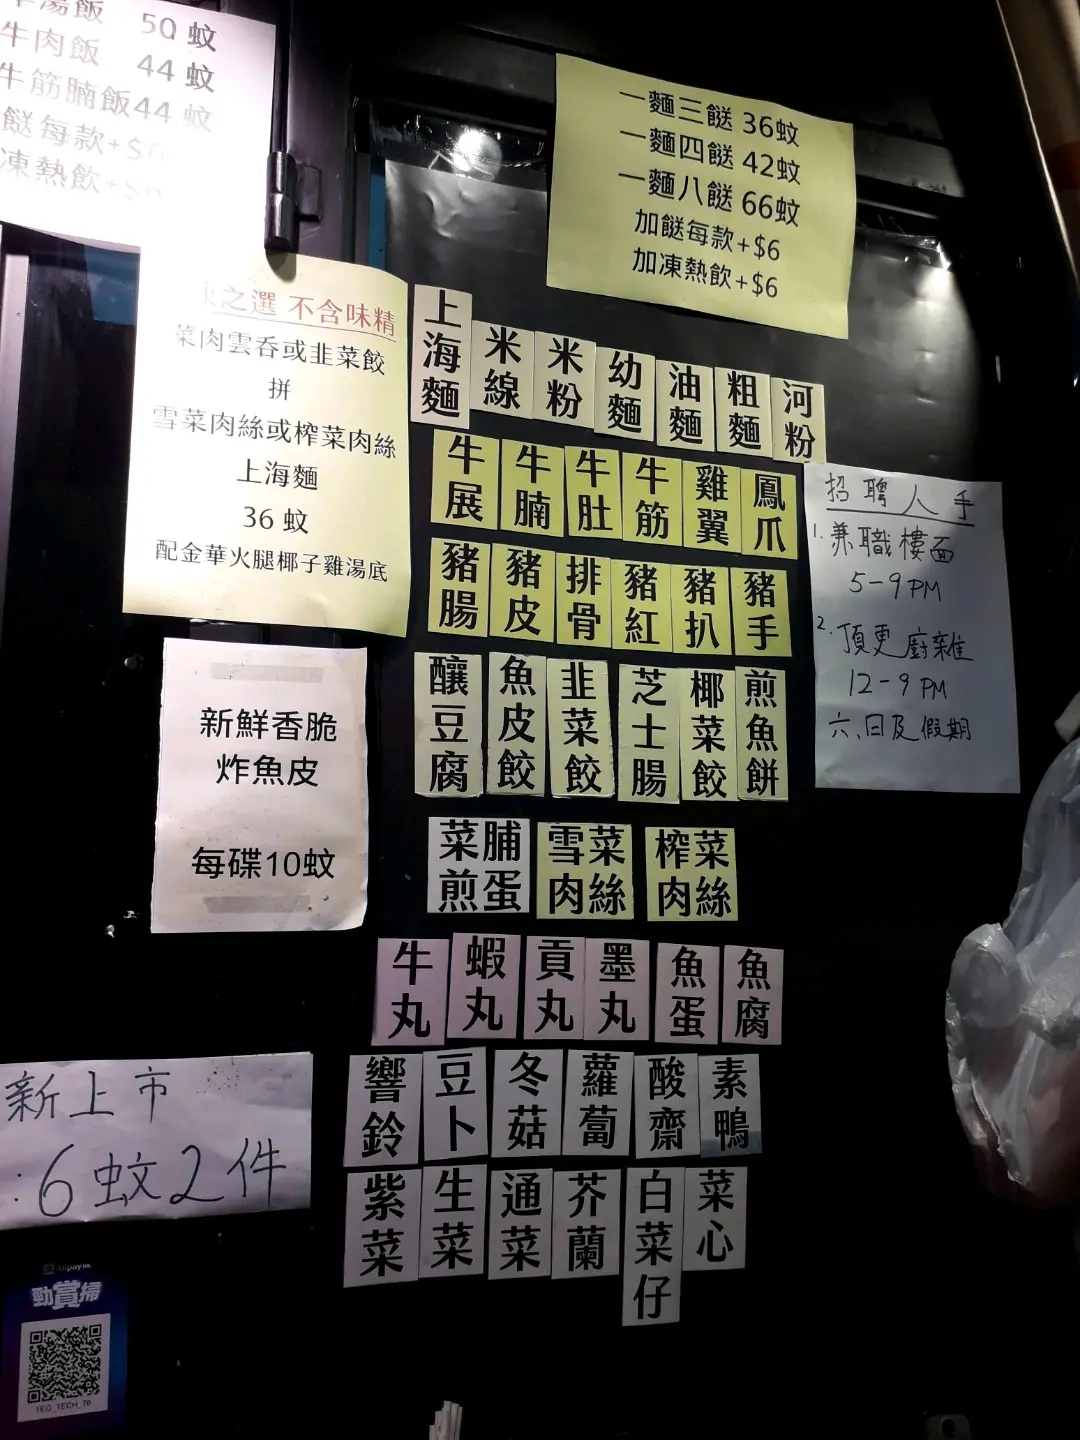 湯飯 50蚊
牛肉飯 44蚊
牛筋腩飯44蚊
餸每款+$6
凍熱飲+$
一麵三餸 36蚊
一麵四餸 42蚊
一麵八餸 66蚊
加餸每款+$6
加凍熱飲+$6
之選 不含味精
菜肉雲吞或韭菜餃
拼
雪菜肉絲或榨菜肉絲
上海麵
36 蚊
配金華火腿椰子雞湯底
上海麵 米線 米粉 幼麵 油麵 粗麵 河粉
牛展 牛腩 牛肚 牛筋 雞翼 鳳爪
豬腸 豬皮 排骨 豬紅 豬扒 豬手
釀豆腐 魚皮餃 韭菜餃 芝士腸 椰菜餃 煎魚餅
菜脯煎蛋 雪菜肉絲 榨菜肉絲
牛丸 蝦丸 貢丸 墨丸 魚蛋 魚腐
響鈴 豆卜 冬菇 蘿蔔 酸齋 素鴨
紫菜 生菜 通菜 芥蘭 白菜仔 菜心
招聘人手
1. 兼職樓面
5-9PM
2. 頂更廚雜
12-9PM
六、日及假期
新鮮香脆
炸魚皮
每碟10蚊
新上市
:6蚊2件
勁賞掃
TEG_TECH_76